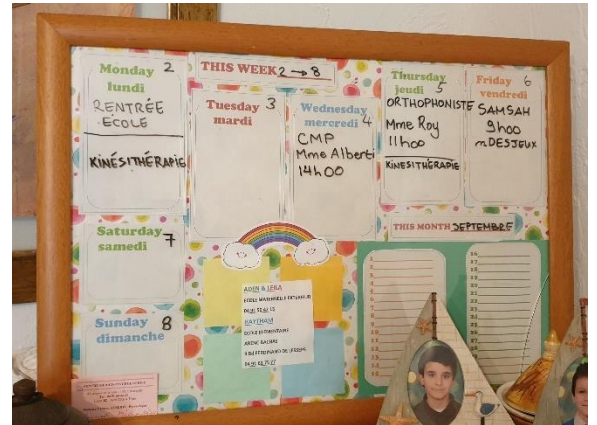 Monday 2
lundi
RENTRÉE
ECOLE
KINÉSITHÉRAPIE
THIS WEEK 2 → 8
Tuesday 3
mardi
Wednesday
mercredi 4
CMP
Mme Alberti
14h00
Thursday
jeudi 5
ORTHOPHONISTE
Mme Roy
11h00
KINÉSITHÉRAPIE
Friday 6
vendredi
SAMSAH
9h00
DESJEUX
Saturday 7
samedi
Sunday 8
dimanche
THIS MONTH SEPTEMBRE
ADEN &
ECOLE